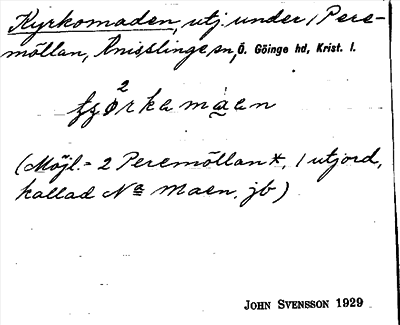 Kyrkomaden, utj. under 1 Pere-
möllan, Änisslinge sn, Ö. Göinge hd, Krist. l.
2
maan
(Möjl. = 2 Peremöllan *, 1 utjord,
kallad Na Maen. jb)
JOHN SVENSSON 1929